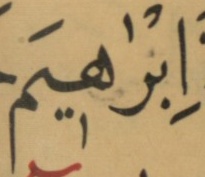 اِبْرٰهِيمَ